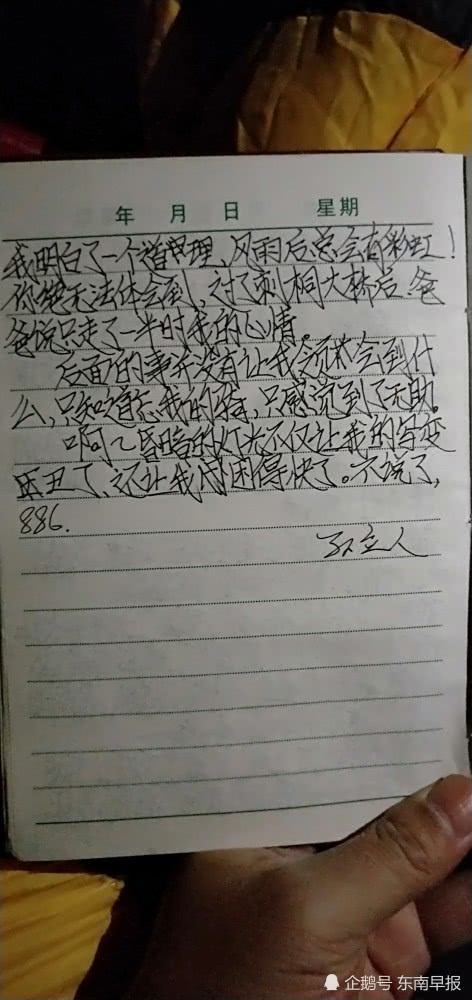 年 月 日 星期
我明白了一个道理、风雨后总会有彩虹!
你绝无法体会到,过了刺桐大桥后.爸
爸说只走了一半时我的心情。
后面的事并没有让我体会到什
么,只知道我的,只感觉到了无助。
啊~昏暗的灯光不仅让我的字变
丑了、还让我困得快了。不说了,
886.
企鹅号 东南早报